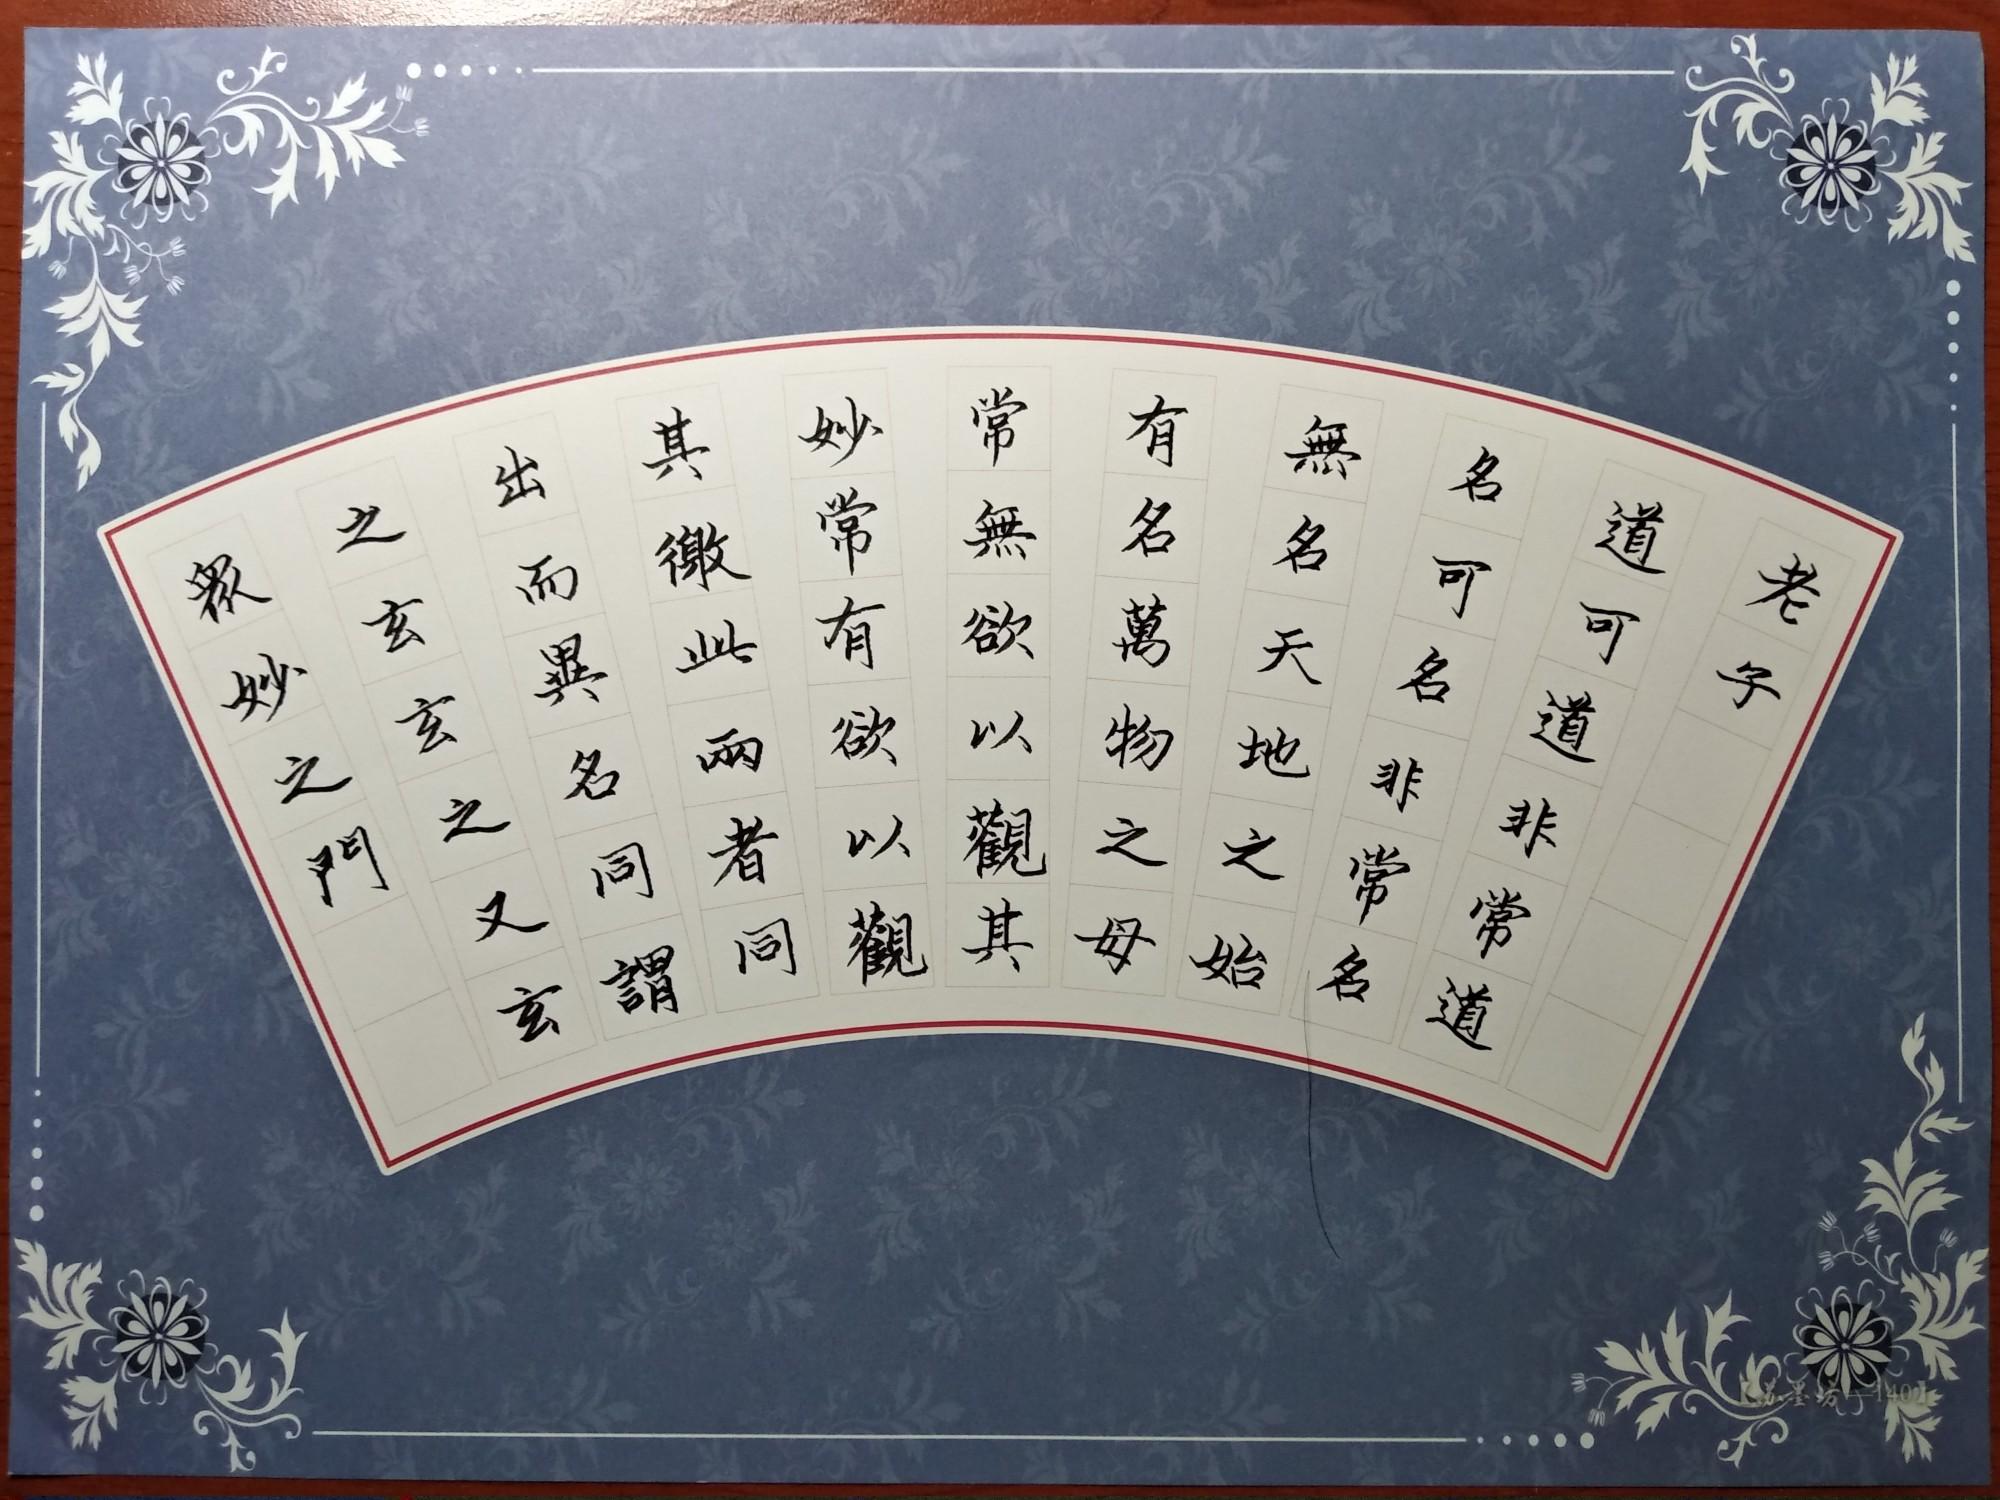 老子
道可道非常道
名可名非常名
無名天地之始
有名萬物之母
常無欲以觀其
妙常有欲以觀
其徼此兩者同
出而異名同謂
之玄玄之又玄
眾妙之門
【苏墨坊—140】